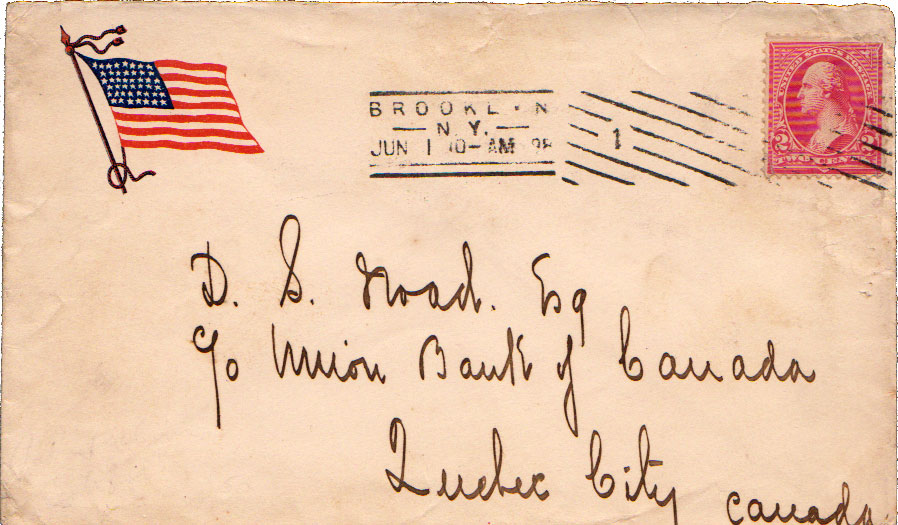 BROOKLYN
N.Y.
JUN 1 10-AM 98
1
UNITED STATES POSTAGE
2 TWO CENTS 2
D. S. Noad. Esq
c/o Union Bank of Canada
Quebec City
Canada.